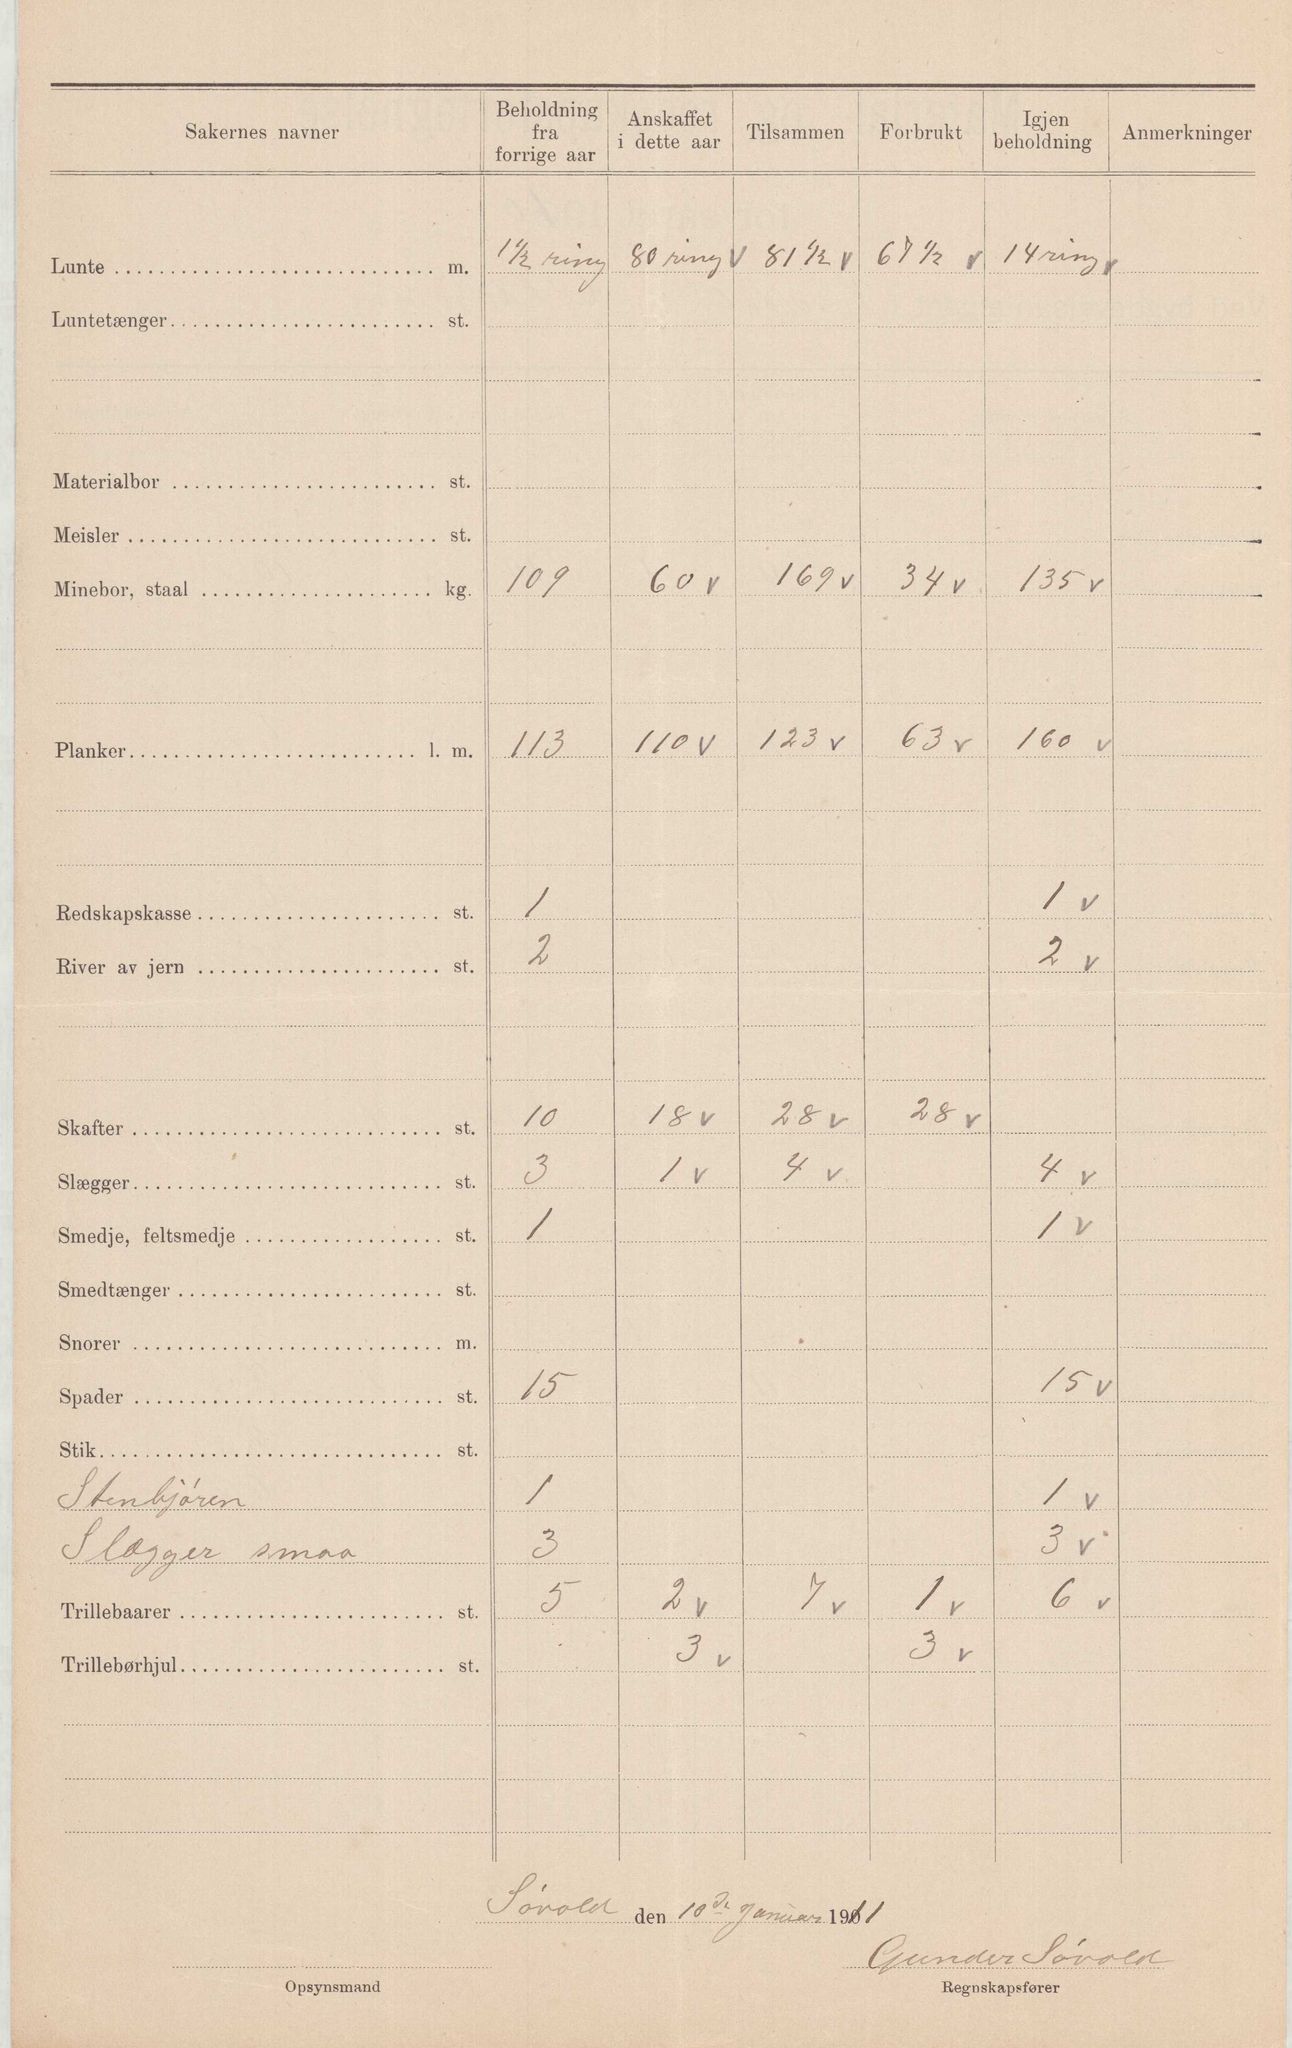 Sakernes navner | Beholdning fra forrige aar | Anskaffet i dette aar | Tilsammen | Forbrukt | Igjen beholdning | Anmerkninger
Lunte m. 1 1/2 ring 80 ring v 81 1/2 v 67 1/2 v 14 ring v
Luntetænger st.
Materialbor st.
Meisler st.
Minebor, staal kg. 109 60 v 169 v 34 v 135 v
Planker l. m. 113 110 v 123 v 63 v 160 v
Redskapskasse st. 1 1 v
River av jern st. 2 2 v
Skafter st. 10 18 v 28 v 28 v
Slægger st. 3 1 v 4 v 4 v
Smedje, feltsmedje st. 1 1 v
Smedtænger st.
Snorer m.
Spader st. 15 15 v
Stik st.
Stenbjøren 1 1 v
Slægger smaa 3 3 v
Trillebaarer st. 5 2 v 7 v 1 v 6 v
Trillebørhjul st. 3 v 3 v
Sóvold den 10de Januar 1911
Gunder Sóvold
Opsynsmand Regnskapsfører